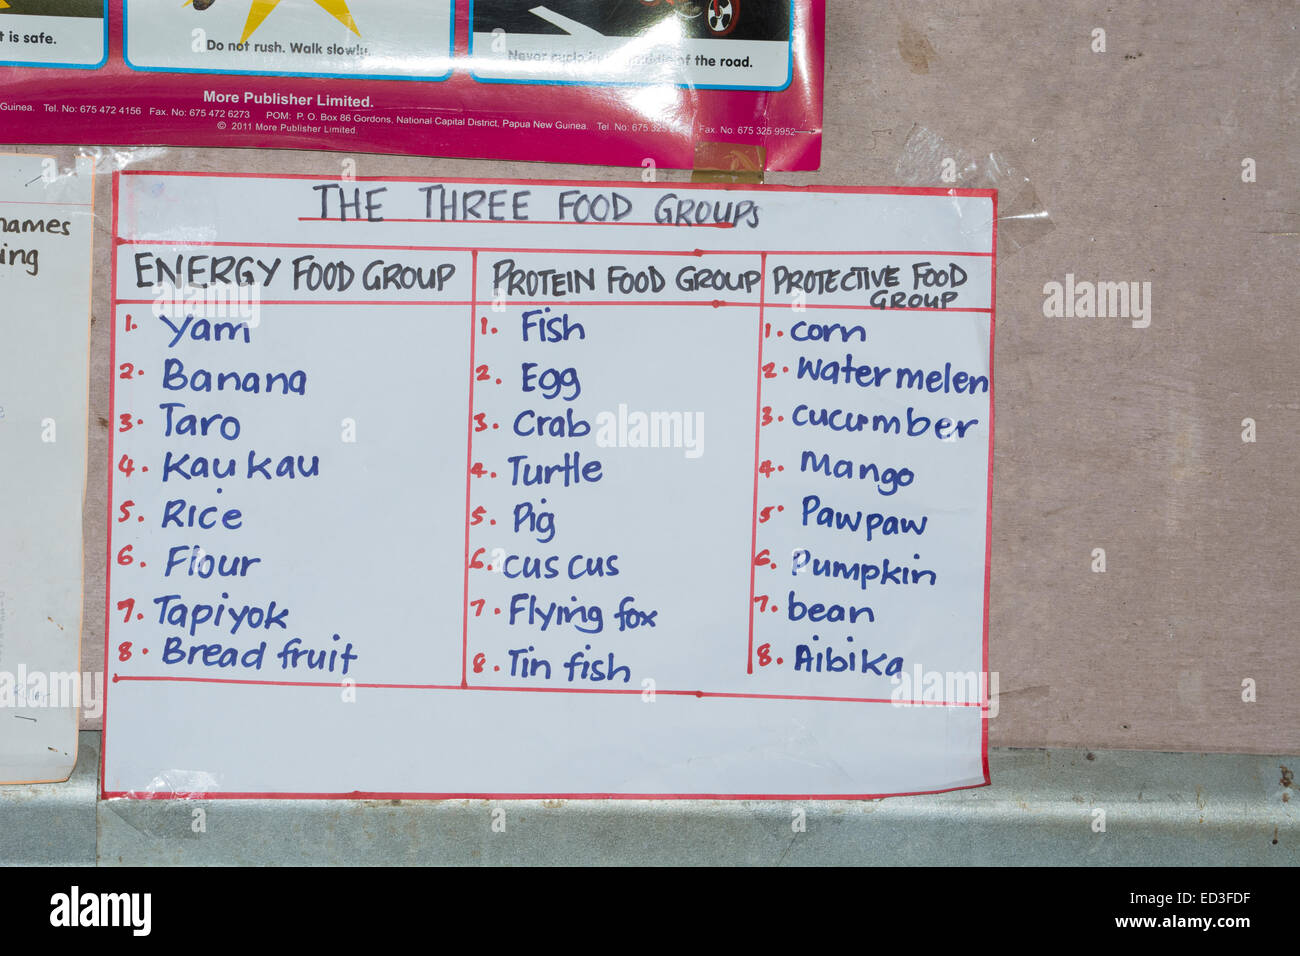 t is safe.
Do not rush. Walk slowly.
Never cycle in middle of the road.
More Publisher Limited.
Guinea. Tel. No: 675 472 4156 Fax. No: 675 472 6273 POM: P. O. Box 86 Gordons, National Capital District, Papua New Guinea. Tel. No: 675 325 Fax. No: 675 325 9952
© 2011 More Publisher Limited.
names
ing
THE THREE FOOD GROUPS
ENERGY FOOD GROUP
1. Yam
2. Banana
3. Taro
4. Kau kau
5. Rice
6. Flour
7. Tapiyok
8. Bread fruit
PROTEIN FOOD GROUP
1. Fish
2. Egg
3. Crab
4. Turtle
5. Pig
6. cus cus
7. Flying fox
8. Tin fish
PROTECTIVE FOOD
GROUP
1. corn
2. Water melen
3. cucumber
4. Mango
5. Pawpaw
6. Pumpkin
7. bean
8. Aibika
alamy
alamy
alamy
a
a
a
a
a
a
a
a
a
alamy
Image ID: ED3FDF
www.alamy.com